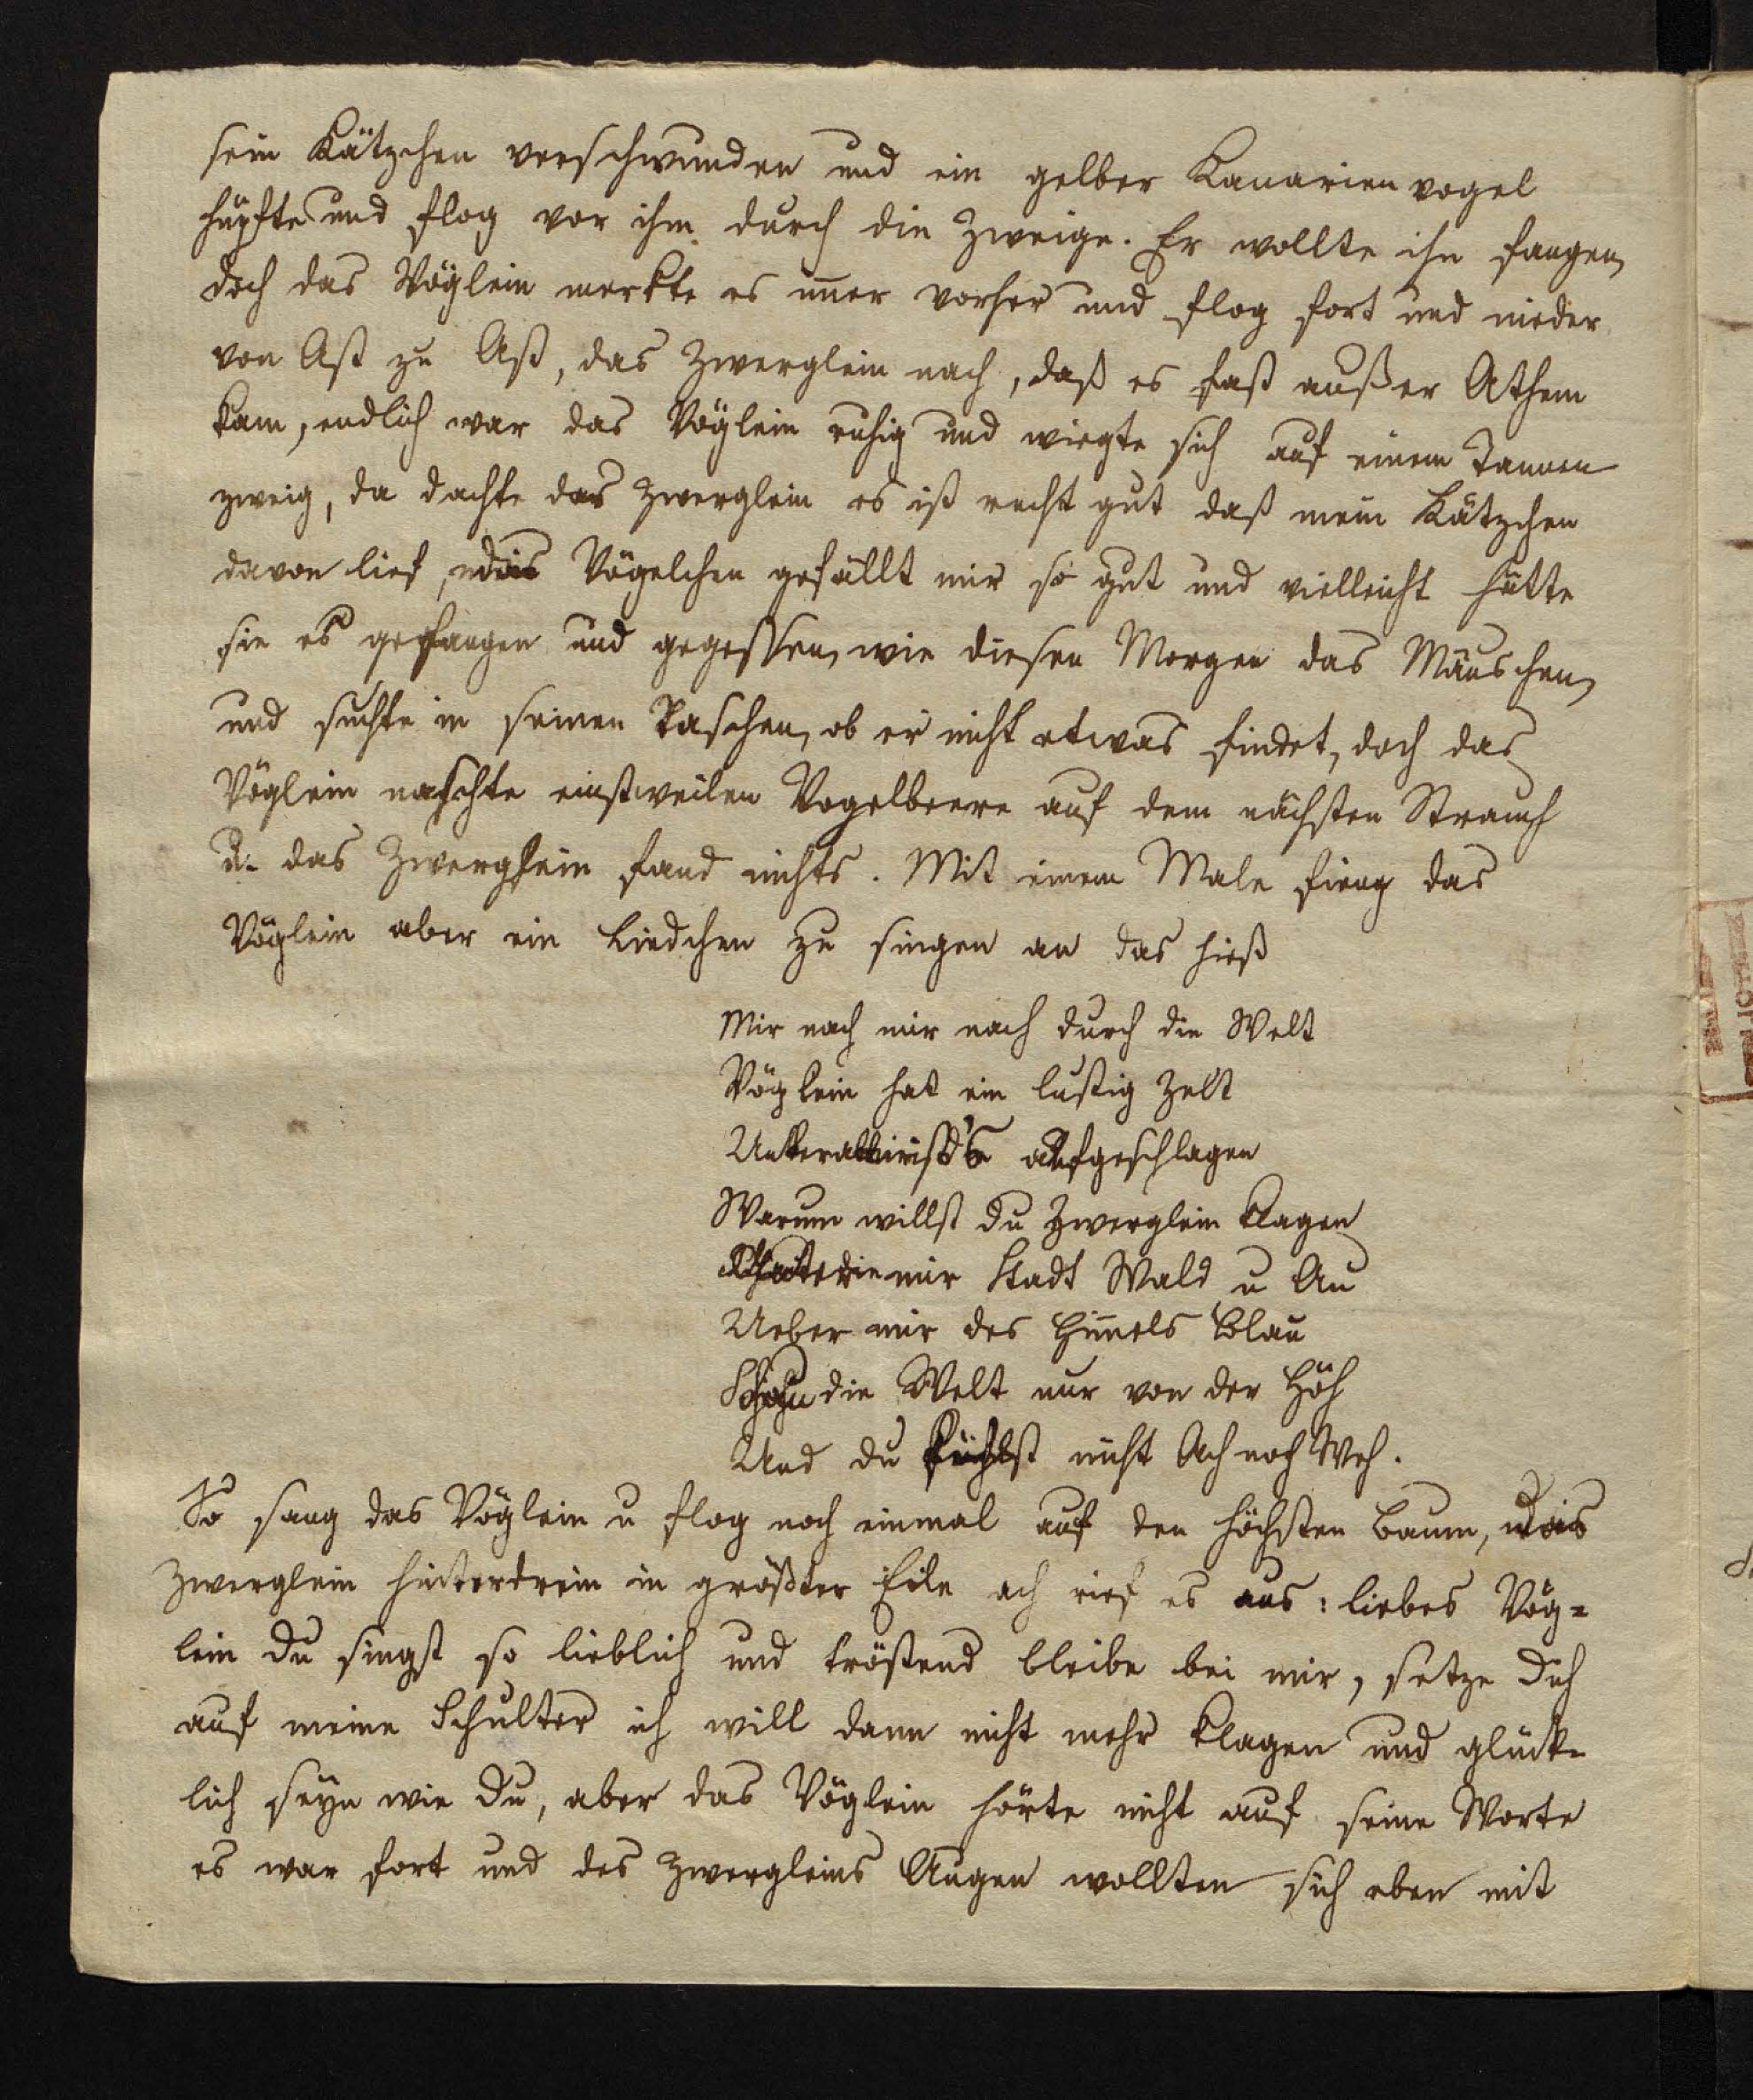 sein Kätzchen verschwunden und ein gelber Kanarienvogel
hüpfte und flog vor ihm durch die Zweige. Er wollte ihn fangen,
doch das Vöglein merkte es im̄er vorher und flog fort und nieder
von Ast zu Ast, das Zwerglein nach, daß es fast außer Athem
kam, endlich war das Vöglein ruhig und wiegte sich auf einem Tannen
zweig, da dachte das Zwerglein es ist recht gut daß mein Kätzchen
davon lief, das Vögelchen gefällt mir so gut und vielleicht hätte
sie es gefangen und gegessen, wie diesen Morgen das Mäuschen,
und suchte in seinen Taschen, ob er nicht etwas findet, doch das
Vöglein naschte einstweilen Vogelbeere auf dem nächsten Strauch
u. das Zwerglein fand nichts. Mit einem Male fieng das
Vöglein aber ein Liedchen zu singen an das hieß
Mir nach mir nach durch die Welt
Vöglein hat ein lustig Zelt
aufgeschlagen
Warum willst du Zwerglein klagen
mir Stadt Wald u Au
Ueber mir des Him̄els Blau
die Welt nur von der Höh
Und du fühlst nicht Ach noch Weh.
So sang das Vöglein u flog noch einmal auf den höchsten Baum, das
Zwerglein hinterdrein in größter Eile ach rief es aus: liebes Vög=
lein du singst so lieblich und tröstend bleibe bei mir, setze dich
auf meine Schulter ich will dann nicht mehr klagen und glück-
lich seyn wie du, aber das Vöglein hörte nicht auf seine Worte
es war fort und des Zwergleins Augen wollten sich eben mit